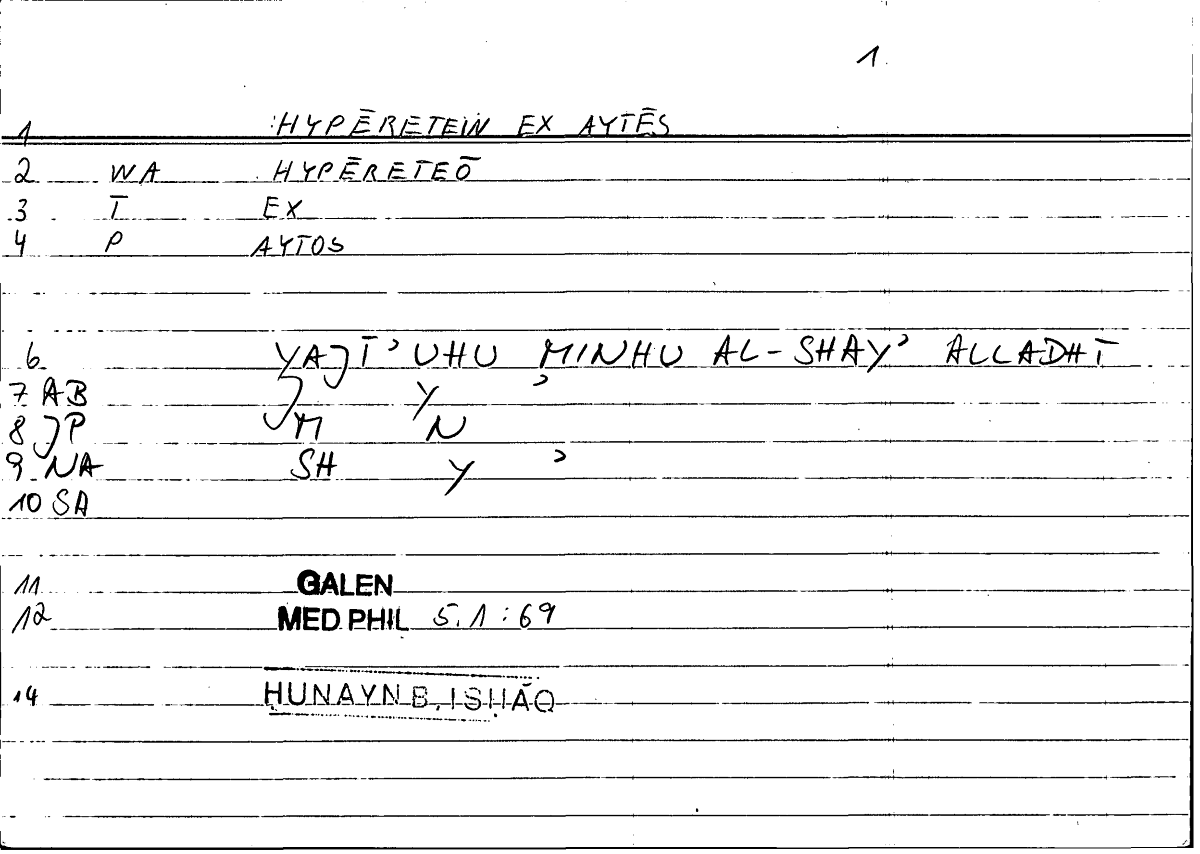 1
1 HYPĒRETEIN EX AYTĒS
2 WA HYPĒRETEŌ
3 T EX
4 P AYTOS
6 YAJĪʾUHU MINHU AL-SHAYʾ ALLADHĪ
7 AB J Y ʾ
8 JP M N
9 NA SH Y ʾ
10 SA
11 GALEN
12 MED PHIL 5.1:69
14 ḤUNAYN B. ISḤĀQ